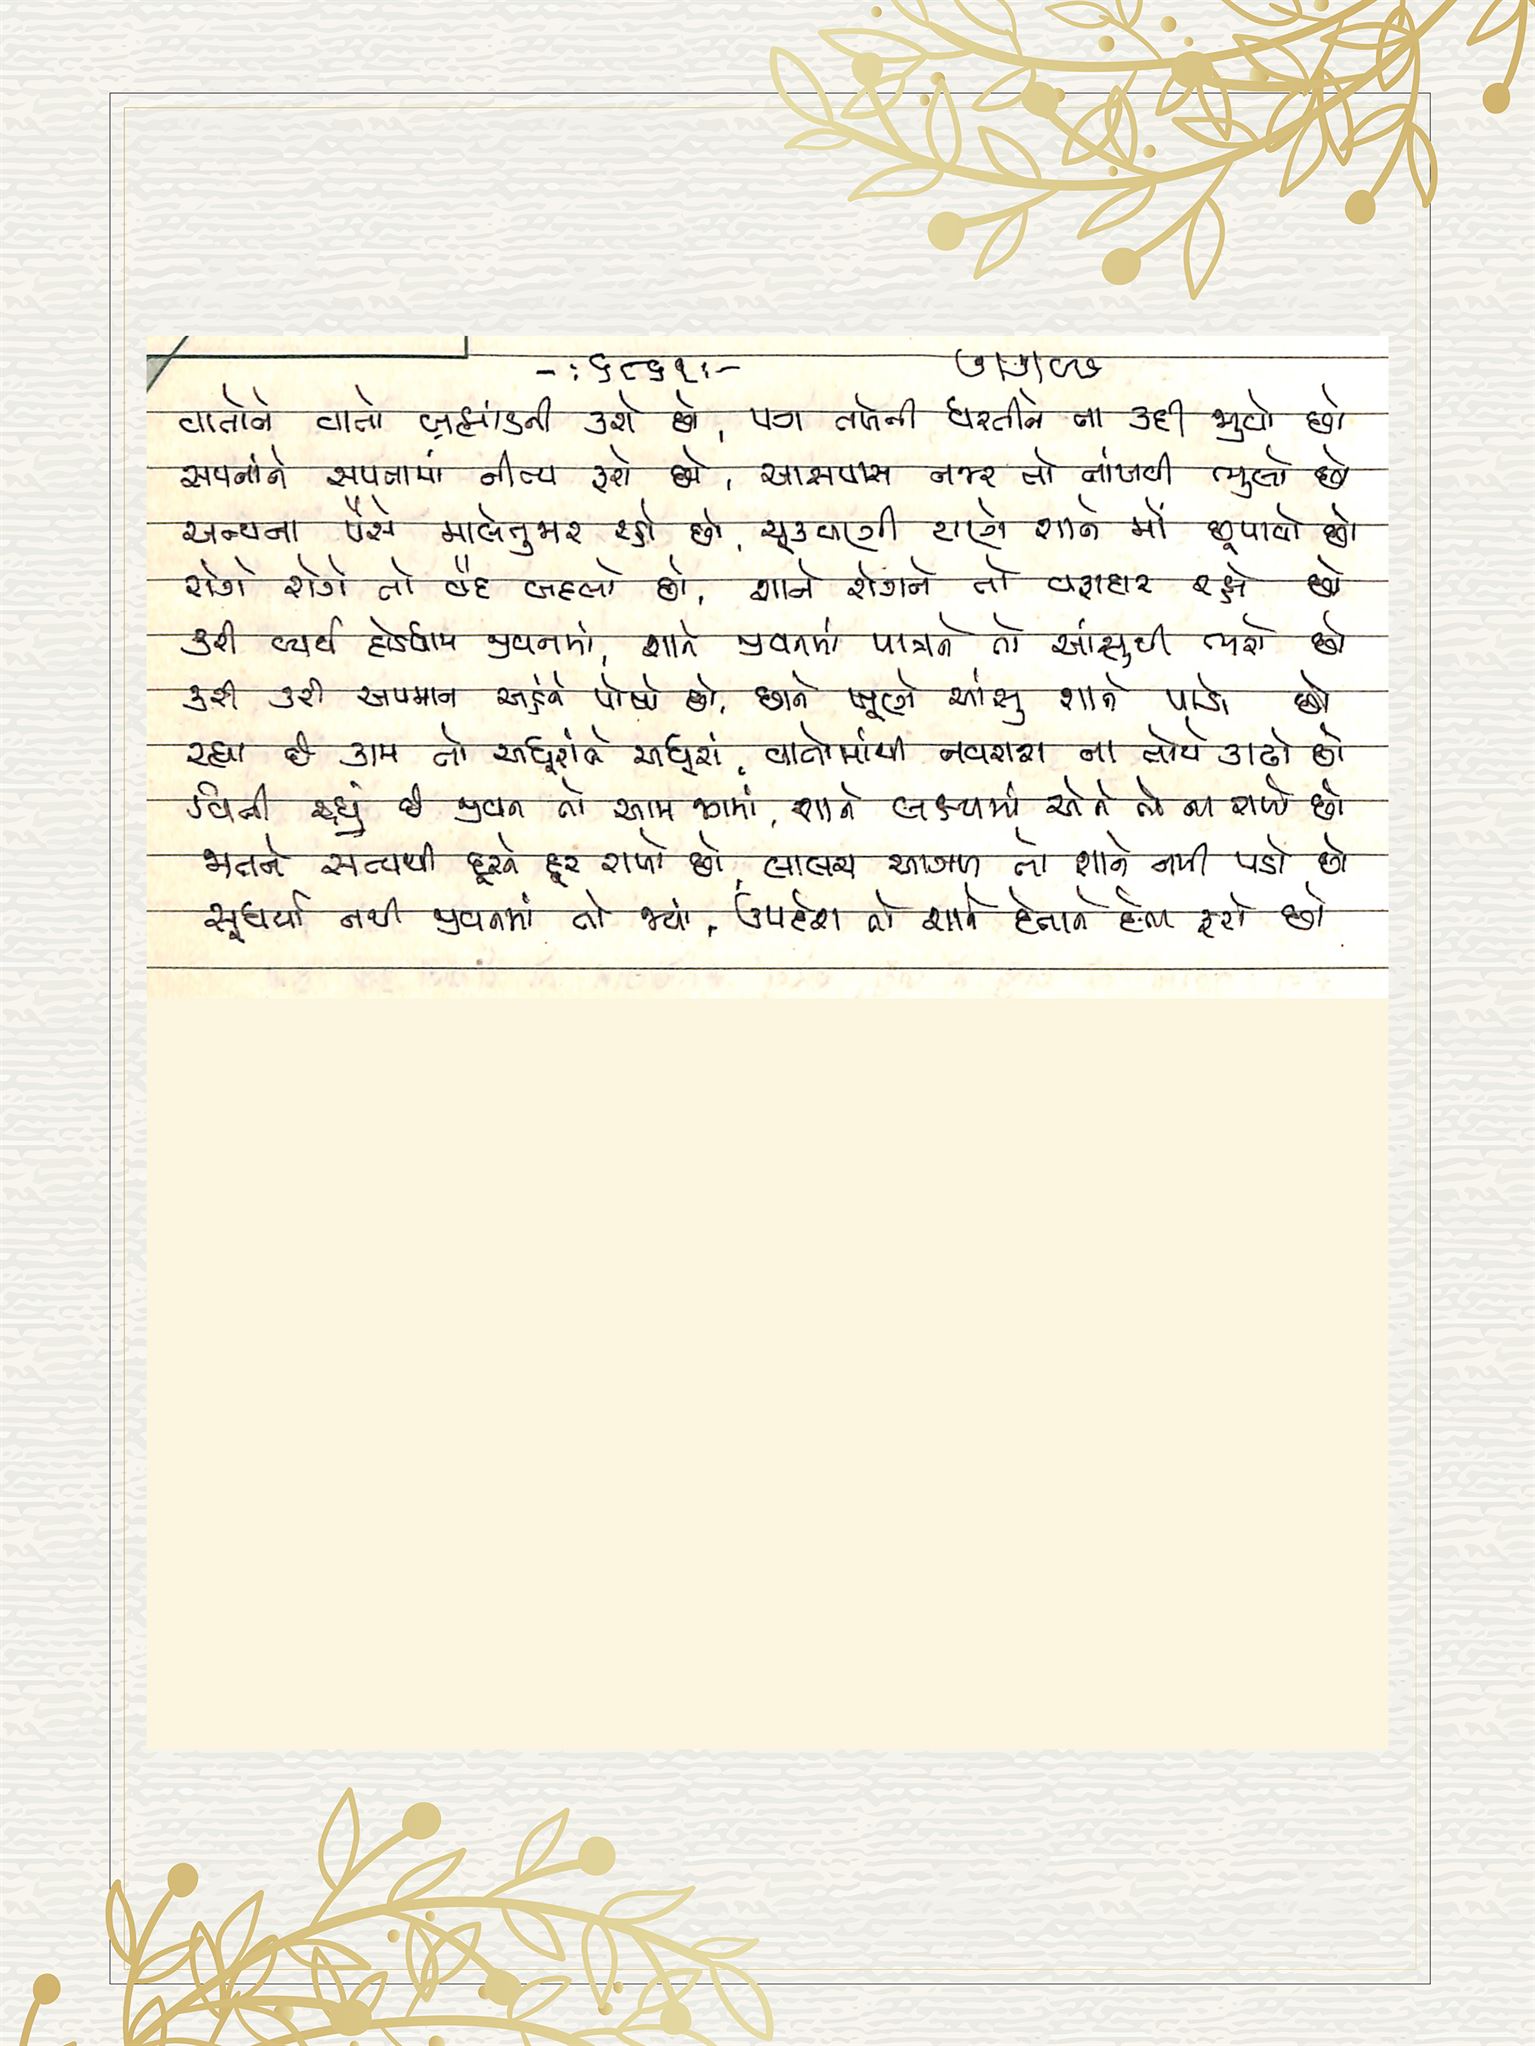 -:૬૮૬૧:-
વાતોને વાતો બ્રહ્માંડની કરો છો, પગ તળેની ધરતીને ના કદી જુવો છો
સપનાંને સપનામાં નીત્ય ફરો છો, આસપાસ નજર તો નાંખવી ભુલો છો
અન્યના પૈસે માલેતુજાર રહ્યો છો, સૂકવાણી ટાણે શાને મોં છૂપાવો છો
રોગે રોગે તો વૈદ બદલો છો, શાને રોગને તો વફાદાર રહ્યો છો
કરી વ્યર્થ દોડધામ જીવનમાં, શાને જીવનમાં પાત્રને તો આંસુથી ભરો છો
કરી કરી અપમાન અહંને પોષો છો, છાને ખૂણે આંસુ શાને પાડો છો
રહ્યા છે કામ તો અધૂરાંને અધૂરાં, વાતોમાંથી નવરાશ ના તોયે કાઢો છો
વિતી ગયું છે જીવન તો આમ જગમાં, શાને લક્ષ્યમાં એને તો ના રાખો છો
જાતને સત્યથી દૂરને દૂર રાખો છો, લાલચ આગળ તો શાને નમી પડો છો
સૂધર્યા નથી જીવનમાં તો જ્યાં, ઉપદેશ તો શાને દેતાને દેતા ફરો છો